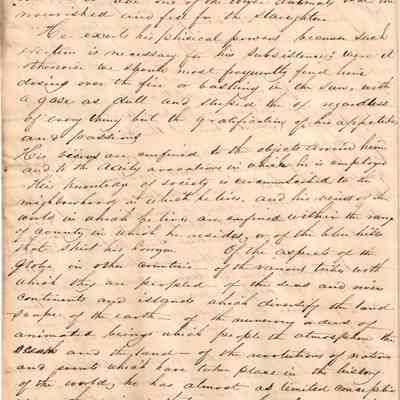 one of the
nourished and fed for the slaughter
He exerts his phisical powers because such
exertion is necessary for his subsistence; were it
otherwise we should most frequently find him
dosing over the fire or basking in the sun, with
a gase as dull and stupid as if regardless
of every thing but the gratification of his appetites
and passions
His views are confined to the objects around him
and to the daily avocations in which he is employed
His knowledge of society is circumscribed to the
neighbourhood in which he lives, and his views of the
world in which he lives are confined within the range
of county in which he resides, or of the blue hills
that skirt his horizon Of the aspects of the
globe in other countries of the various tribes with
which they are peopled of the seas and rivers
continents and islands which diversify the land
scape of the earth of the numerous orders of
animated beings which people the atmosphere the
ocean and the land of the revolutions of nations
and events which have taken place in the history
of the world, he has almost as limited conceptio